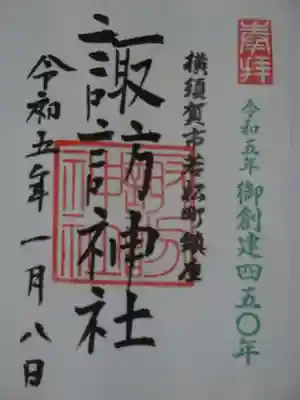 奉拝
令和五年 御創建四五〇年
横須賀市若松町鎮座
諏訪神社
令和五年一月八日